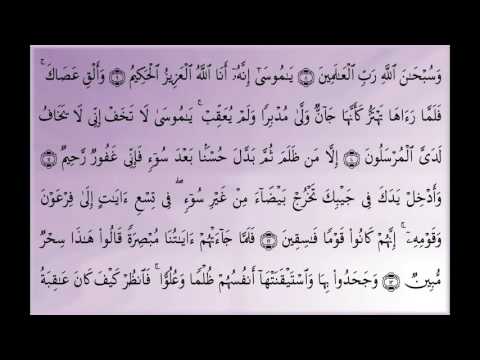 وَسُبْحَـٰنَ ٱللَّهِ رَبِّ ٱلْعَـٰلَمِينَ ۝٨ يَـٰمُوسَىٰٓ إِنَّهُۥٓ أَنَا ٱللَّهُ ٱلْعَزِيزُ ٱلْحَكِيمُ ۝٩ وَأَلْقِ عَصَاكَ ۚ
فَلَمَّا رَءَاهَا تَهْتَزُّ كَأَنَّهَا جَآنٌّ وَلَّىٰ مُدْبِرًا وَلَمْ يُعَقِّبْ ۚ يَـٰمُوسَىٰ لَا تَخَفْ إِنِّى لَا يَخَافُ
لَدَىَّ ٱلْمُرْسَلُونَ ۝١٠ إِلَّا مَن ظَلَمَ ثُمَّ بَدَّلَ حُسْنًۢا بَعْدَ سُوٓءٍ فَإِنِّى غَفُورٌ رَّحِيمٌ ۝١١
وَأَدْخِلْ يَدَكَ فِى جَيْبِكَ تَخْرُجْ بَيْضَآءَ مِنْ غَيْرِ سُوٓءٍ ۖ فِى تِسْعِ ءَايَـٰتٍ إِلَىٰ فِرْعَوْنَ
وَقَوْمِهِۦٓ ۚ إِنَّهُمْ كَانُوا۟ قَوْمًا فَـٰسِقِينَ ۝١٢ فَلَمَّا جَآءَتْهُمْ ءَايَـٰتُنَا مُبْصِرَةً قَالُوا۟ هَـٰذَا سِحْرٌ
مُّبِينٌ ۝١٣ وَجَحَدُوا۟ بِهَا وَٱسْتَيْقَنَتْهَآ أَنفُسُهُمْ ظُلْمًا وَعُلُوًّا ۚ فَٱنظُرْ كَيْفَ كَانَ عَـٰقِبَةُ